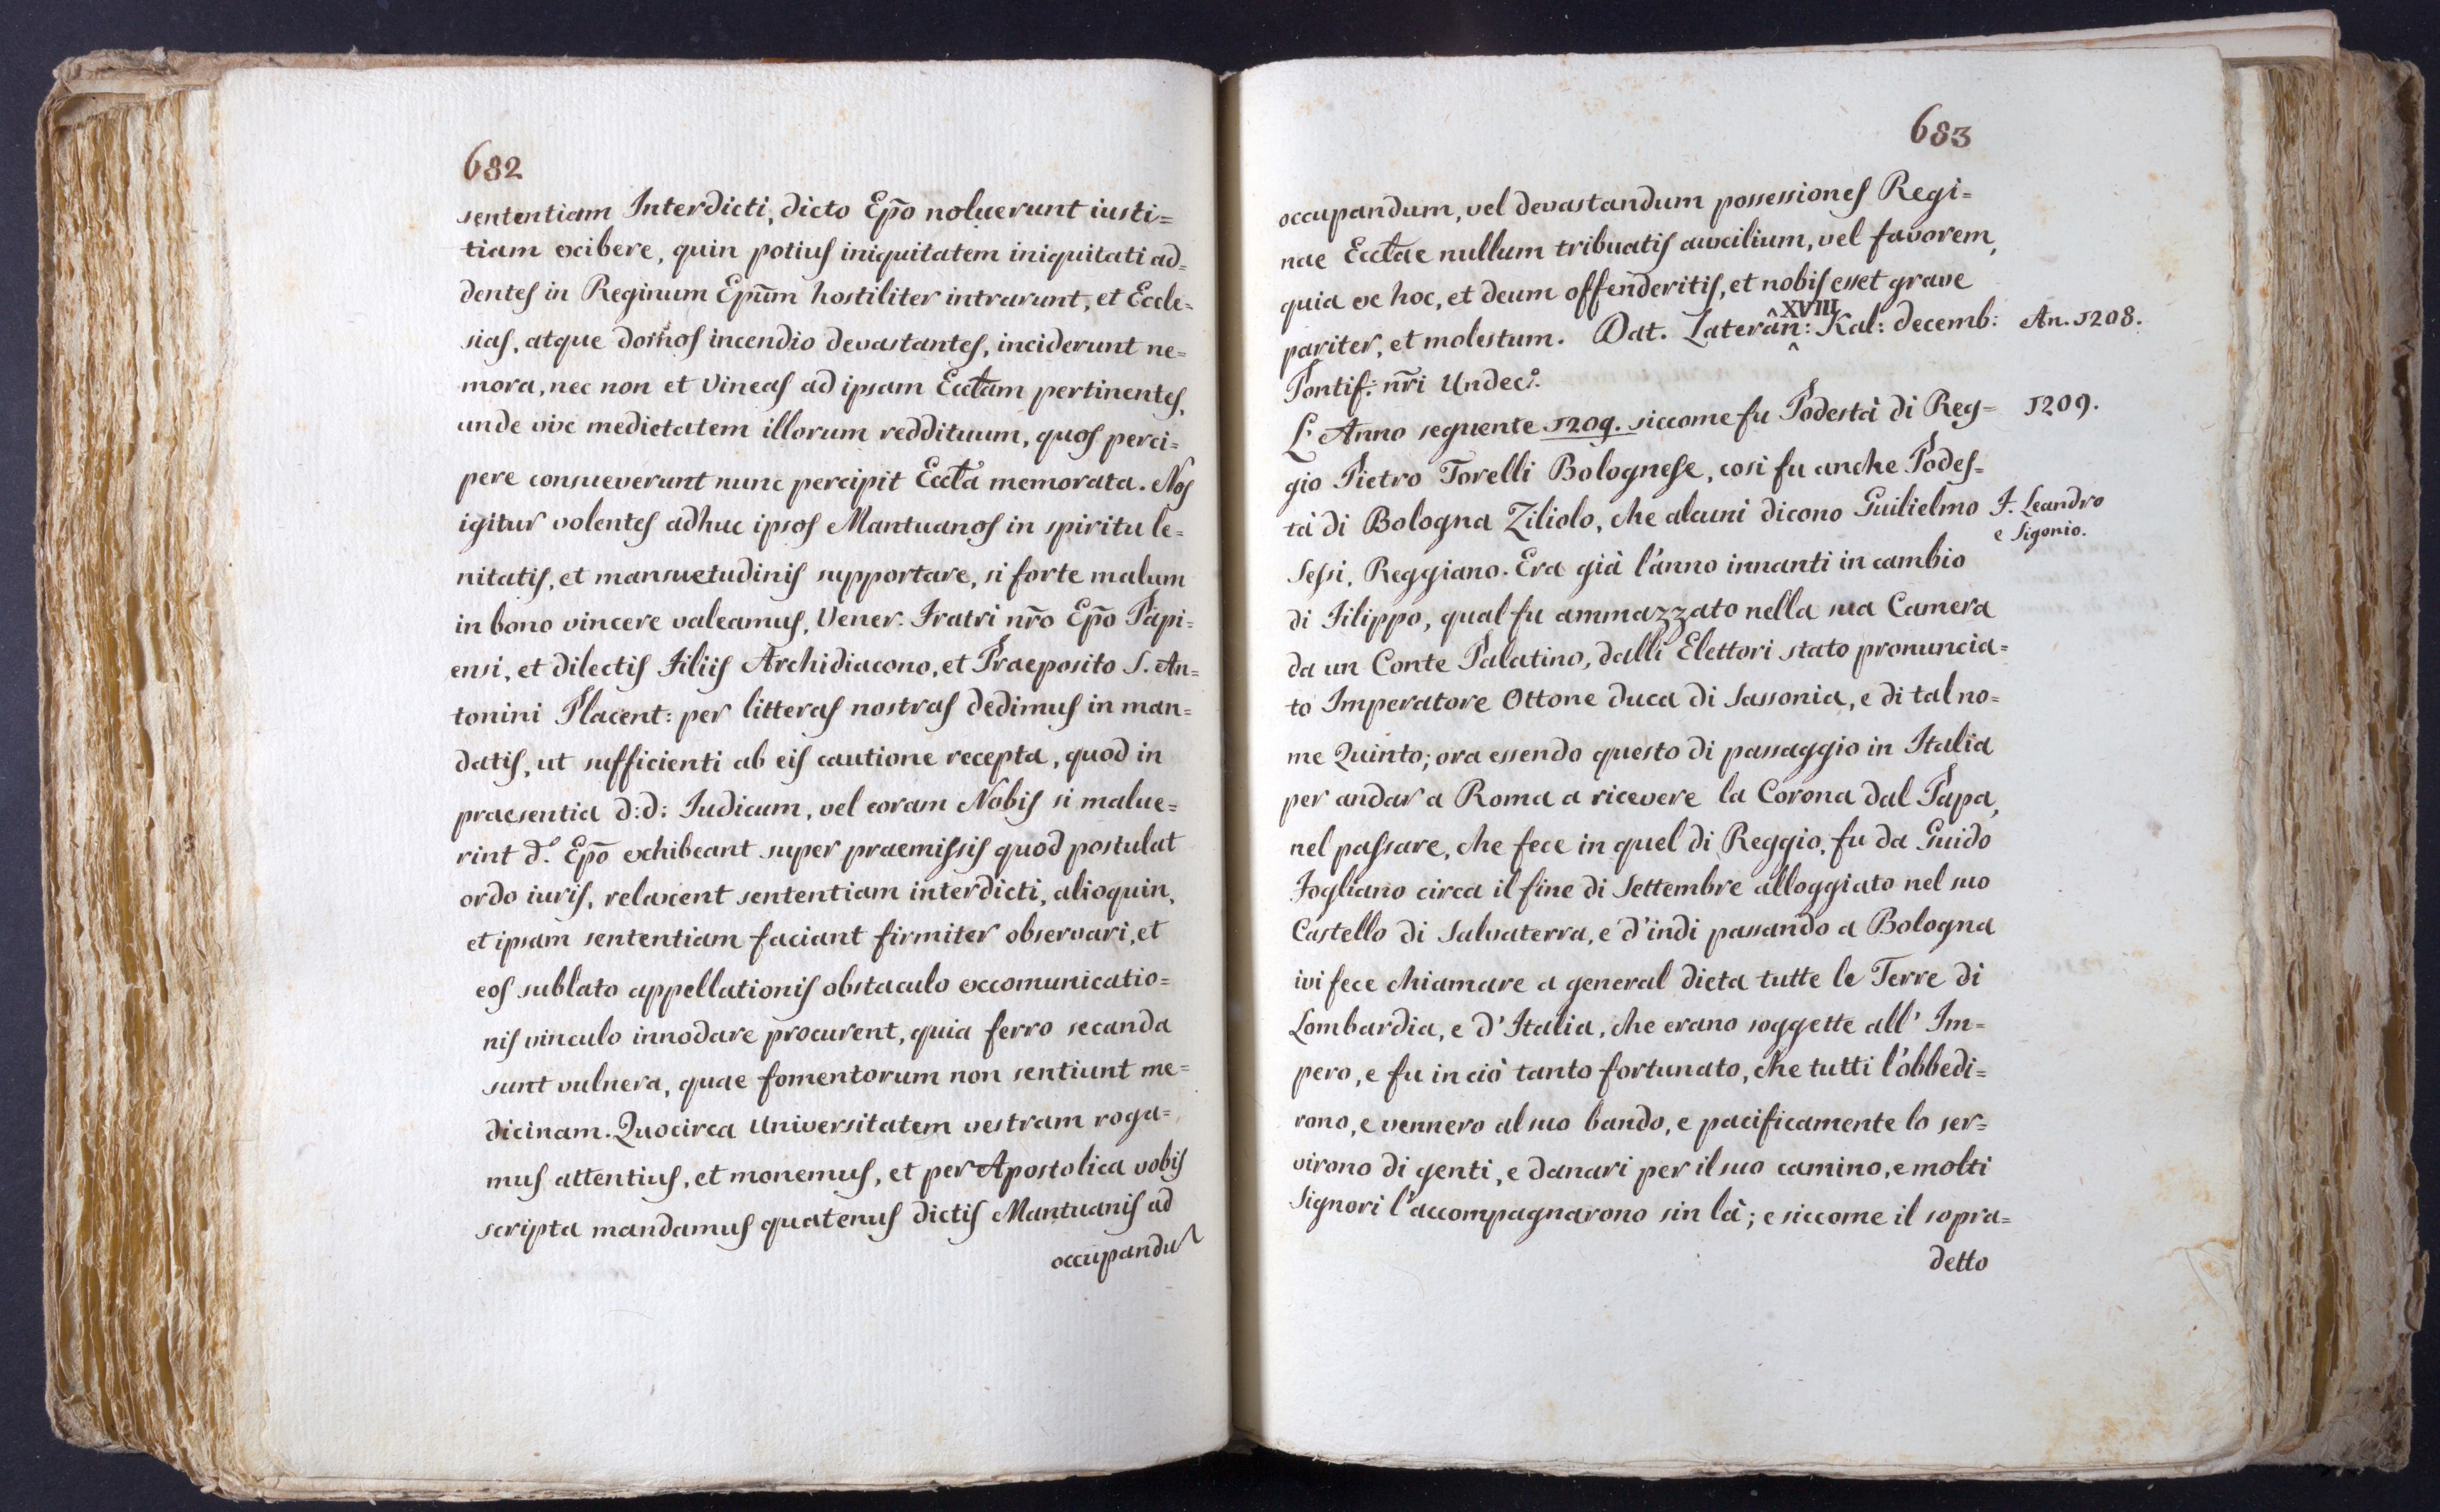 682
sententiam Interdicti, dicto Ep̄o noluerunt iusti=
tiam excibere, quin potius iniquitatem iniquitati ad=
dentes in Reginum Epūm hostiliter intrarunt, et Eccle=
sias, atque domos incendio devastantes, inciderunt ne=
mora, nec non et Vineas ad ipsam Ecctam pertinentes,
unde vix medietatem illorum reddituum, quos perci=
pere consueverunt nunc percipit Eccta memorata. Nos
igitur volentes adhuc ipsos Mantuanos in spiritu le=
nitatis, et mansuetudinis supportare, si forte malum
in bono vincere valeamus, Vener. Fratri nr̄o Ep̄o Papi=
ensi, et dilectis Filiis Archidiacono, et Praeposito S. An=
tonini Placent: per litteras nostras dedimus in man=
datis, ut sufficienti ab eis cautione recepta, quod in
praesentia d:d: Iudicum, vel coram Nobis si malue=
rint d.º Ep̄o exhibeant super praemissis quod postulat
ordo iuris, relaxent sententiam interdicti, alioquin,
et ipsam sententiam faciant firmiter observari, et
eos sublato appellationis obstaculo excomunicatio=
nis vinculo innodare procurent, quia ferro secanda
sunt vulnera, quae fomentorum non sentiunt me=
dicinam. Quocirca Universitatem vestram roga=
mus attentius, et monemus, et per Apostolica vobis
scripta mandamus quatenus dictis Mantuanis ad
occupandu
683
occupandum, vel devastandum possessiones Regi=
nae Ecctae nullum tribuatis auxilium, vel favorem,
quia ex hoc, et deum offenderitis, et nobis esset grave
pariter, et molestum. Dat. Laterân: XVIII Kal: decemb: An. 1208.
Pontif: nr̄i Undec.º
L'Anno seguente 1209. siccome fu Podestà di Reg= 1209.
gio Pietro Torelli Bolognese, cosi fu anche Podes=
tà di Bologna Ziliolo, che alcuni dicono Guilielmo F. Leandro
e Sigonio.
Sessi, Reggiano. Era già l'anno innanti in cambio
di Filippo, qual fu ammazzato nella sua Camera
da un Conte Palatino, dalli Elettori stato pronuncia=
to Imperatore Ottone Duca di Sassonia, e di tal no=
me Quinto; ora essendo questo di passaggio in Italia
per andar a Roma a ricevere la Corona dal Papa,
nel passare, che fece in quel di Reggio, fu da Guido
Fogliano circa il fine di Settembre alloggiato nel suo
Castello di Salvaterra, e d'indi passando a Bologna
ivi fece chiamare a general dieta tutte le Terre di
Lombardia, e d'Italia, che erano soggette all' Im=
pero, e fu in ciò tanto fortunato, che tutti l'obbedi=
rono, e vennero al suo bando, e pacificamente lo ser=
virono di genti, e danari per il suo camino, e molti
Signori l'accompagnarono sin là; e siccome il sopra=
detto